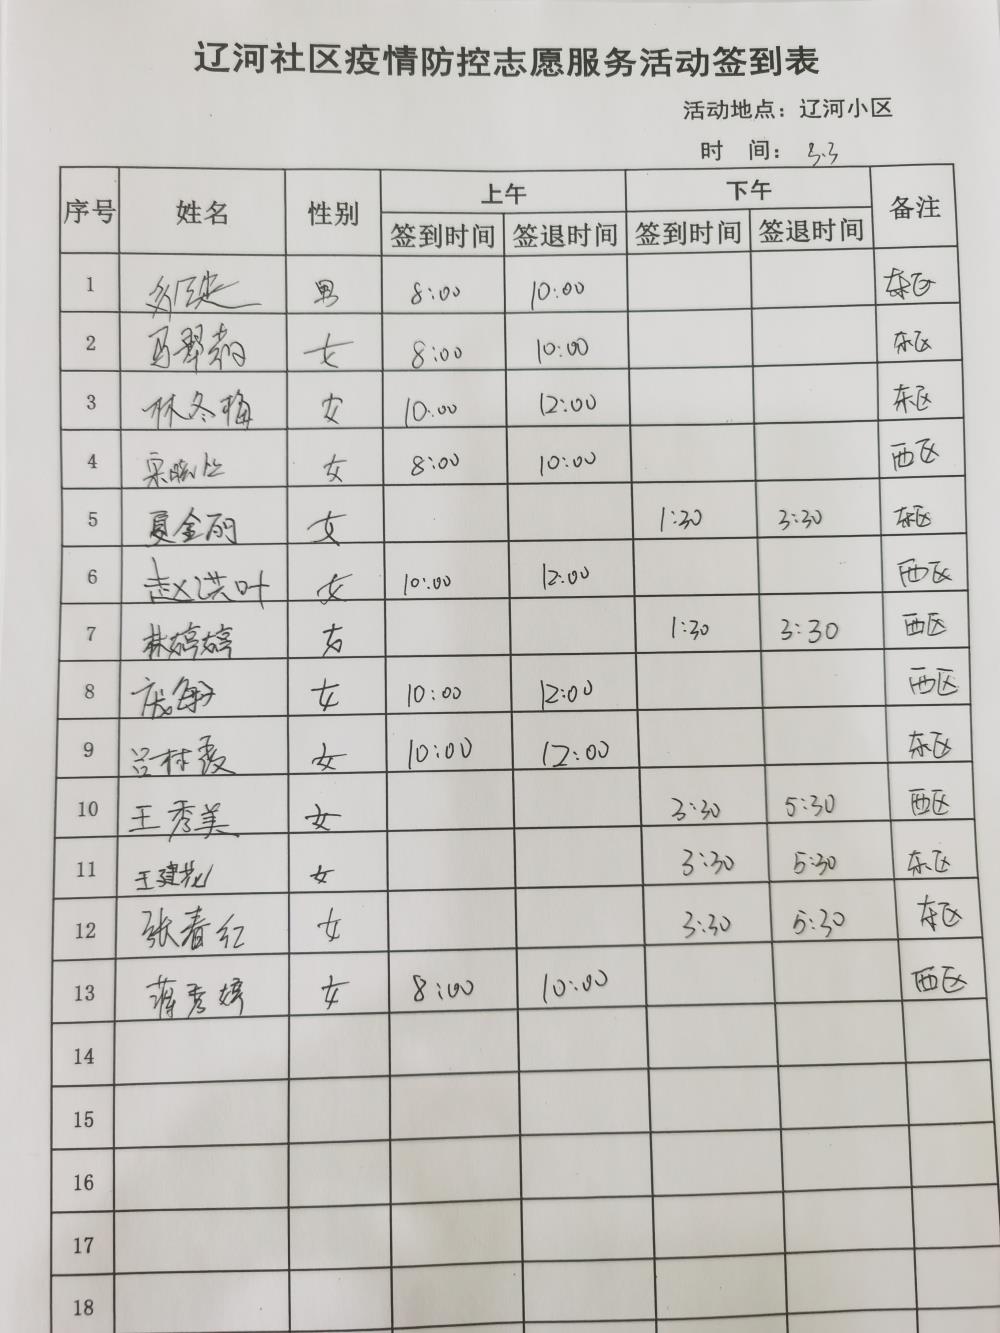 辽河社区疫情防控志愿服务活动签到表
活动地点：辽河小区
时 间： 3.3
序号 姓名 性别 上午 下午 备注
签到时间 签退时间 签到时间 签退时间
1 男 8:00 10:00 东区
2 女 8:00 10:00 东区
3 林冬梅 女 10:00 12:00 东区
4 女 8:00 10:00 西区
5 夏金丽 女 1:30 3:30 东区
6 赵洪叶 女 10:00 12:00 西区
7 林婷婷 女 1:30 3:30 西区
8 庞敏 女 10:00 12:00 西区
9 吕林霞 女 10:00 12:00 东区
10 王秀美 女 3:30 5:30 西区
11 王建花 女 3:30 5:30 东区
12 张春红 女 3:30 5:30 东区
13 蒋秀婷 女 8:00 10:00 西区
14
15
16
17
18